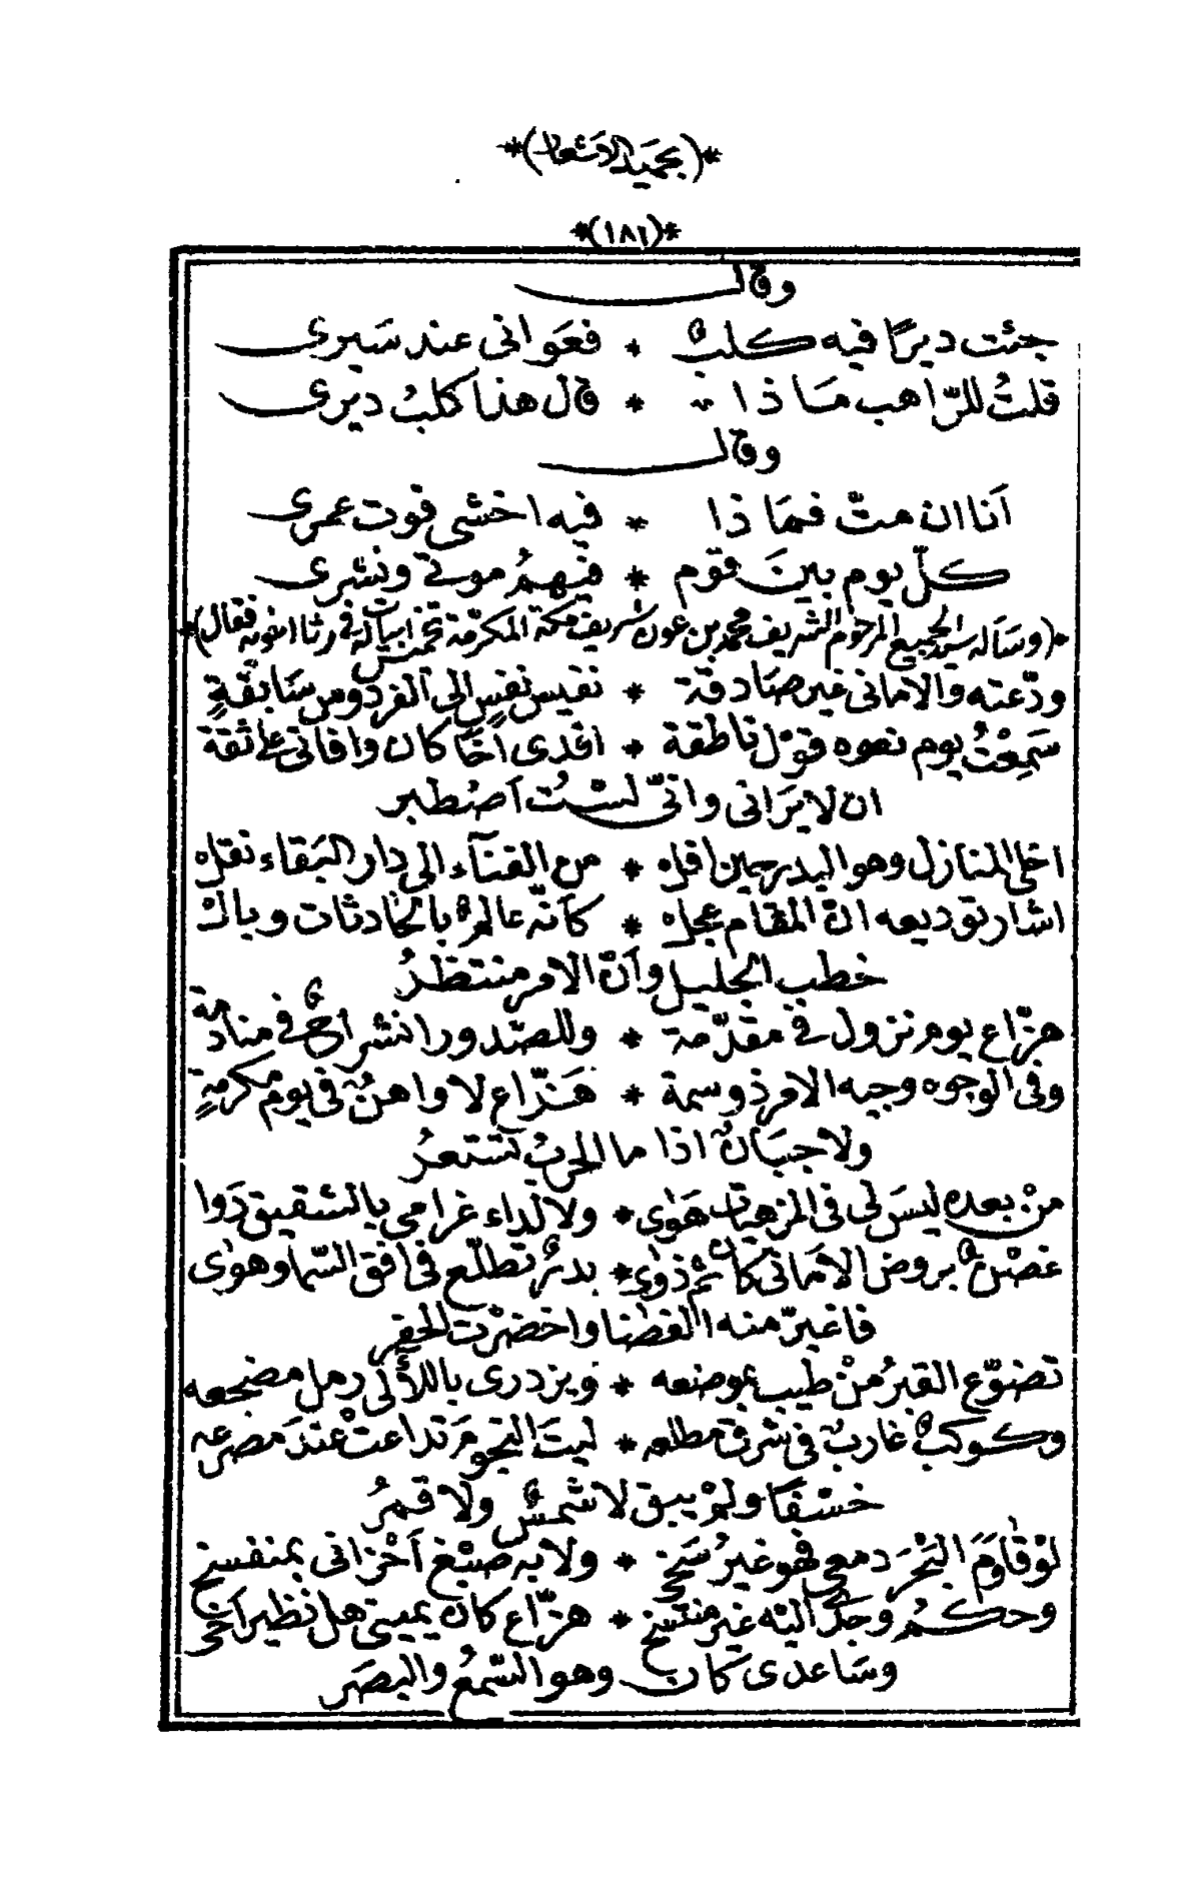 *(بحميد الاشعار)*
*(١٨٦)*
وقال
جئت ديرًا فيه كلبٌ * فعَوانى عند سَيرى
قلتُ للرّاهب مَاذا * قال هذا كلبُ ديرى
وقال
أنا ان متّ فمَاذا * فيه اخشى فوت عمرى
كلّ يوم بينَ قوم * فيهمُ موتى ونشرى
*(وسَأله سيد الجميع المرحوم الشريف محمد بن عون شريف مكة المكرّمة تخميس ابيات له في رثا اخويه فقال)*
ودّعته والامانى غير صَادقة * نفيس نفسٍ الى الفردوس سَابقةٍ
سَمِعْتُ يوم نعوه قوْل ناطقة * افدى أخًا كان وافانى على ثقة
ان لا يَرَانى وانّى لسْتُ أصْطبر
اخلى المنازل وهو البدر حين افله * من الفنآء الى دار البَقاء نقله
اشار توديعه انّ المقام عجله * كأنّه عالمٌ بالحَادثات وبالـ
خطب الجليل وأنّ الامر منتظرُ
هزّاع يوم نزول في مقدّمة * وللصّدور انشراحٌ في منادمة
وفى الوجوه وجيه الامر ذو سمة * هَزّاع لا واهنٌ في يوم مكرمةٍ
ولا جبَانٌ اذا ما الحربُ تستعرُ
منْ بعده ليسَ لى فى المزهيات هَوٰى * ولا لداء غرامى بالشقيق دَوا
غصْنٌ بروض الامَانى كان ثمّ ذوٰى * بدرٌ تطلّع فى افق السّما وهوٰى
فاغبرّ منه الفضا واخضرّت الحفر
تضوّع القبرُ منْ طيب بموضعه * ويزدرى باللآلى رمل مضجعه
وكوكبٌ غاربٌ فى شرق مطلعه * ليتَ النجوم تداعتْ عندَ مصرعه
خسْفًا ولمْ يبق لا شمسٌ ولا قمرُ
لوْ قاومَ البَحْرَ دمعى فهو غيرُ سَخى * ولا به صبْغ أحْزانى بمنفسخ
وحكمُ وجدٌ اليْه غير منتسخ * هزّاع كان يمينى هل نظير أخى
وسَاعدى كان وهو السّمعُ والبصَر